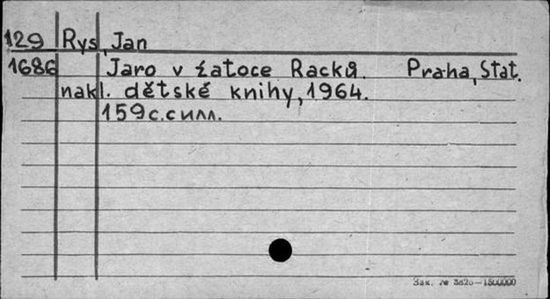 129 Rys, Jan
1686 Jaro v zatoce Racků. Praha, Stat.
nakl. dětské knihy, 1964.
159 с. с илл.
Зак. № 3820—1500000